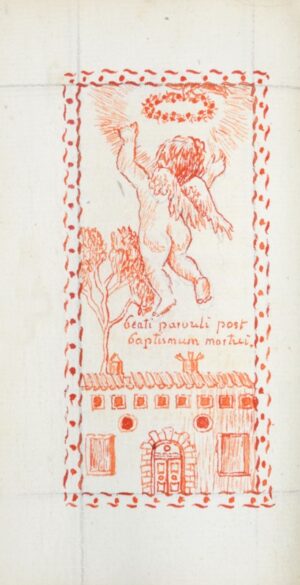 beati parvuli post
baptismum mortui,